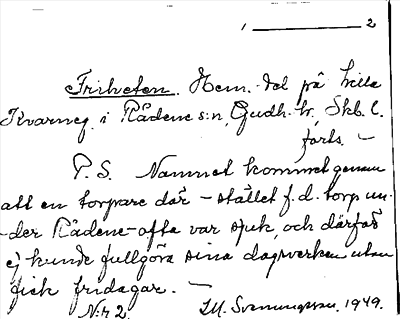 1 — 2
Friheten. Hem.-del på Lilla
Kvarneg. i Rådene s:n, Gudh. hd, Skb. l.
forts. –
P.S. Namnet kommet genom
att en torpare där – stället f.d. torp un-
-der Rådene – ofta var sjuk, och därför
ej kunde fullgöra sina dagsverken utan
fick fridagar. –
N:r 2. I.M. Svenungsson. 1949.